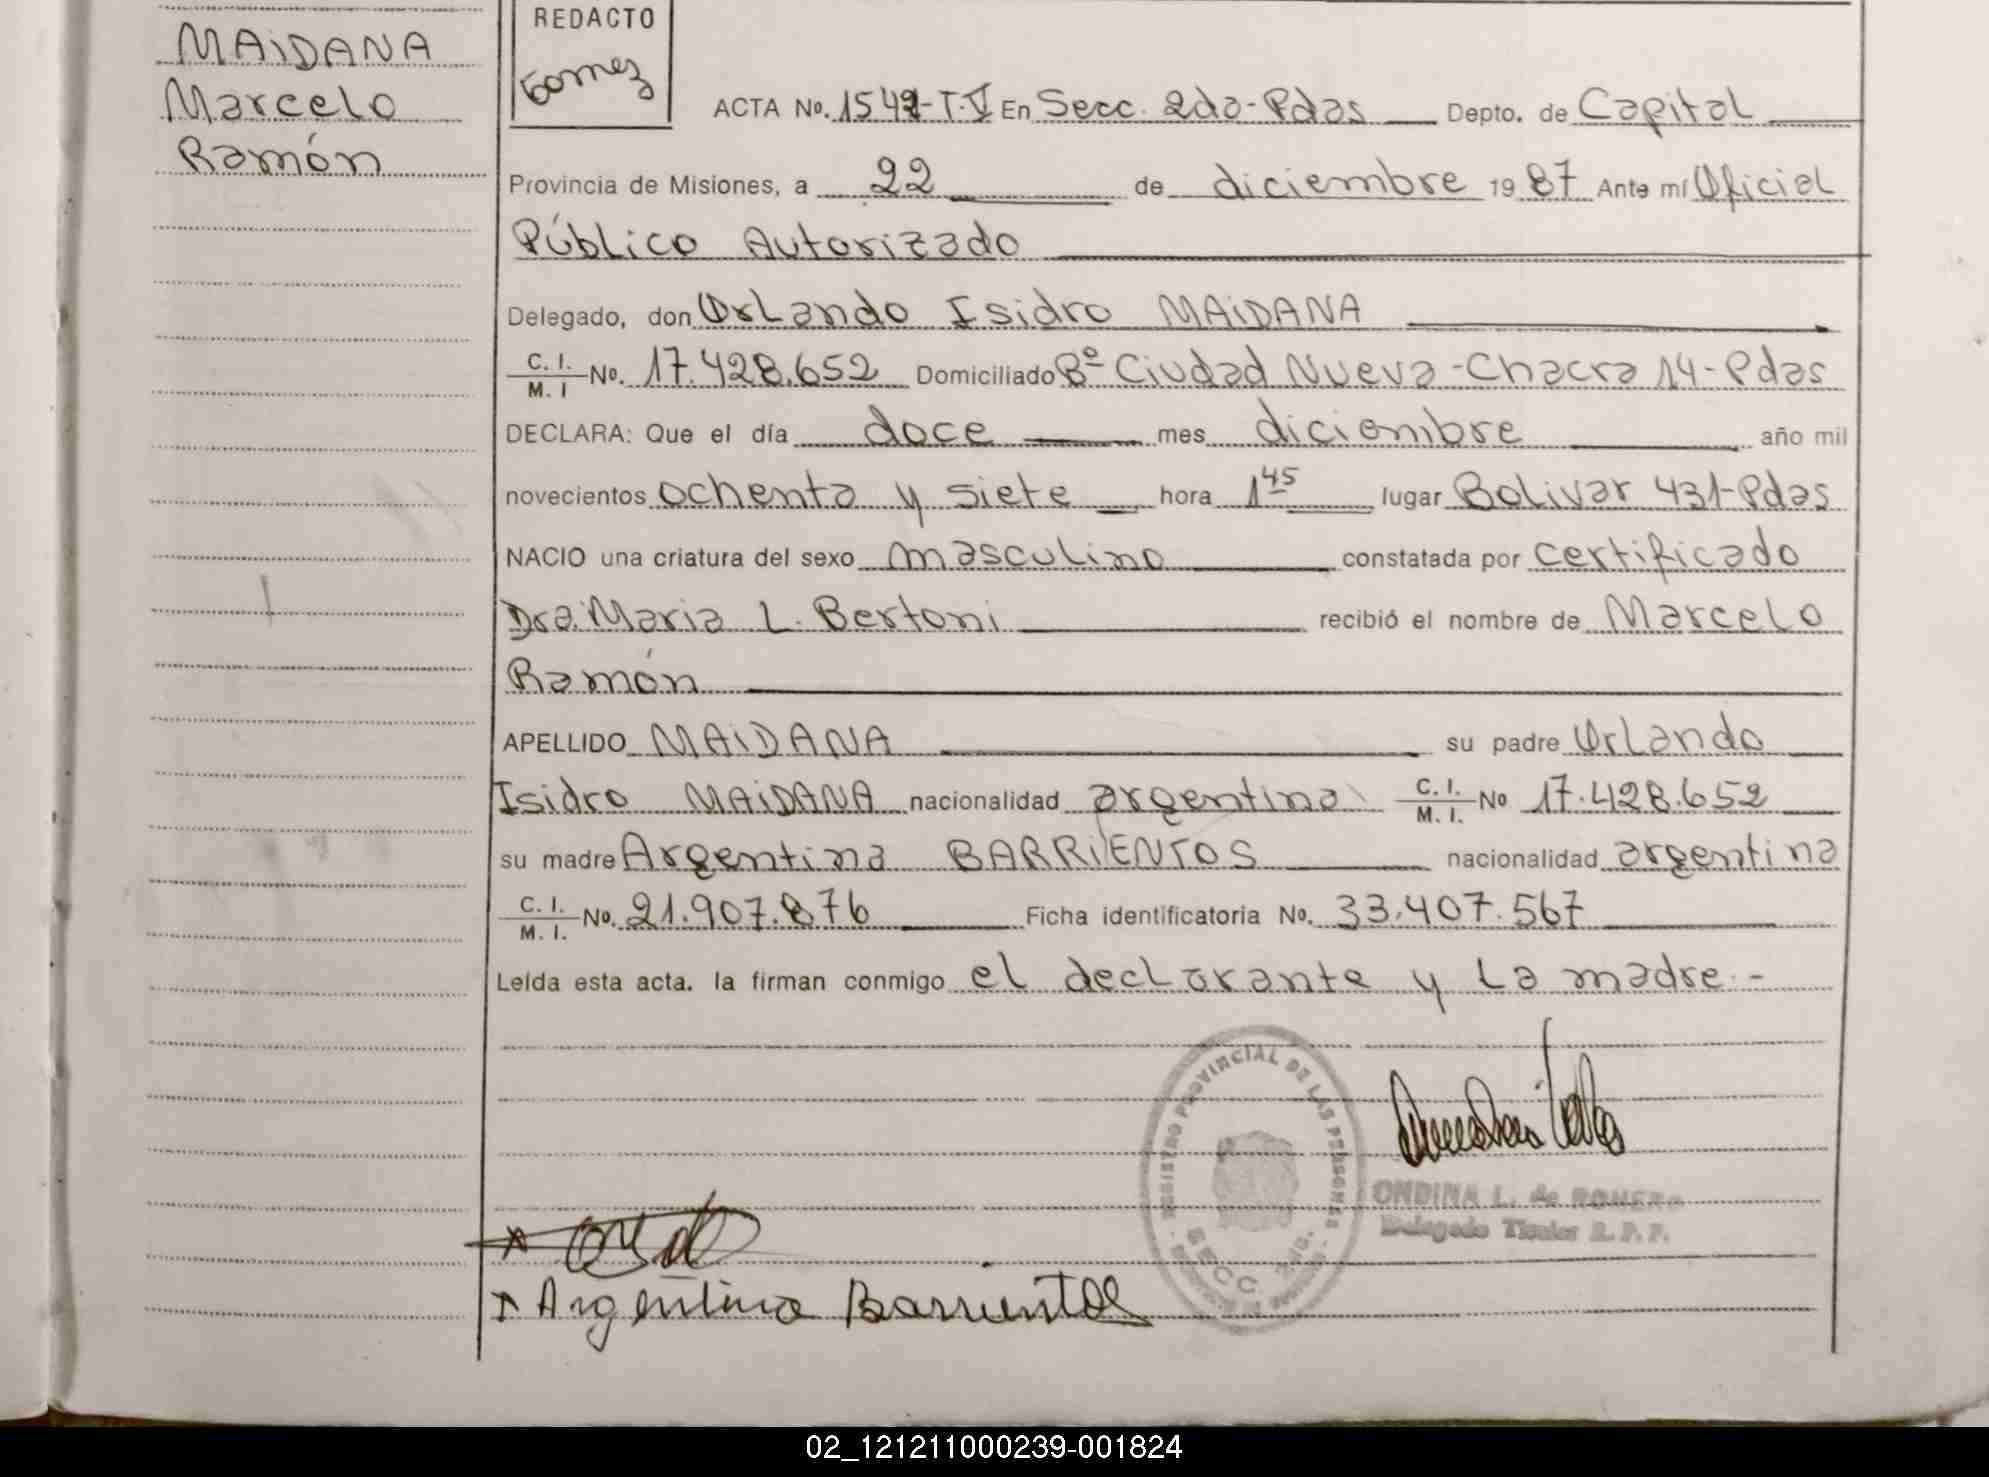 MAiDANA
Marcelo
Ramón
REDACTO
Gomez
ACTA No. 1542-T.V En Secc. 2da-Pdas Depto. de Capital
Provincia de Misiones, a 22 de diciembre 1987 Ante mí Oficial
Público Autorizado
Delegado, don Orlando Isidro MAiDANA
C. I. M. I No. 17.428.652 Domiciliado Bº Ciudad Nueva - Chacra 14 - Pdas
DECLARA: Que el día doce mes diciembre año mil
novecientos ochenta y siete hora 1 45 lugar Bolivar 431-Pdas
NACIO una criatura del sexo masculino constatada por certificado
Dra. Maria L. Bertoni recibió el nombre de Marcelo
Ramón
APELLIDO MAiDANA su padre Orlando
Isidro MAiDANA nacionalidad argentina C. I. M. I. No 17.428.652
su madre Argentina BARRiENTOS nacionalidad argentina
C. I. M. I. No. 21.907.876 Ficha identificatoria No. 33.407.567
Leída esta acta. la firman conmigo el declarante y la madre.-
REGISTRO PROVINCIAL DE LAS PERSONAS
SECC. 2
ONDINA L. de ROMERO
Delegado Titular R. P. P.
Argentina Barrientos
02_121211000239-001824